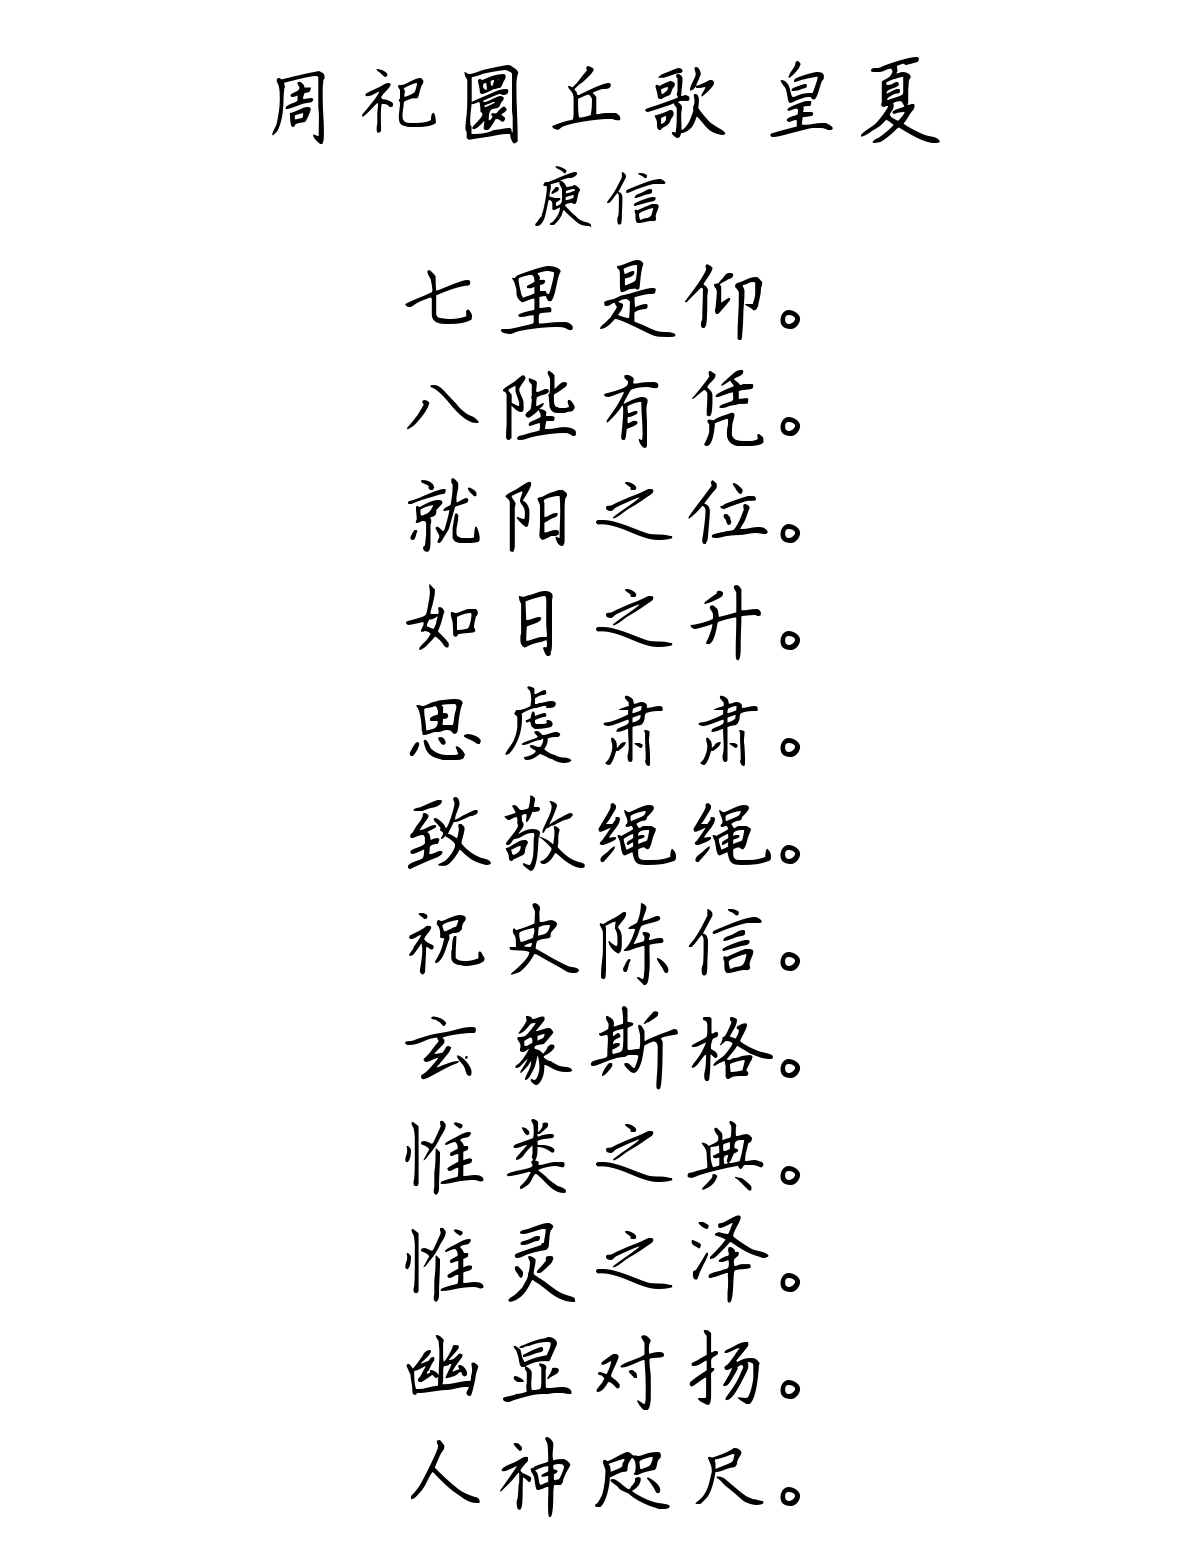 周祀圜丘歌 皇夏
庾信
七里是仰。
八陛有凭。
就阳之位。
如日之升。
思虔肃肃。
致敬绳绳。
祝史陈信。
玄象斯格。
惟类之典。
惟灵之泽。
幽显对扬。
人神咫尺。